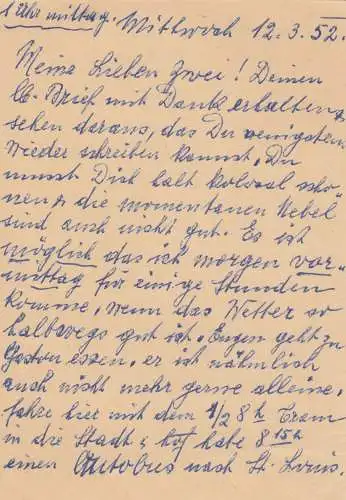 1 Uhr mittag. Mittwoch 12.3.52.
Meine Lieben Zwei! Deinen
lb. Brief mit Dank erhalten &
sehen daraus, das Du wenigstens
wieder schreiben kannst, Du
musst Dich halt kolossal scho=
nen & die momentanen Nebel
sind auch nicht gut. Es ist
möglich das ich morgen vor=
mittag für einige Stunden
komme, wenn das Wetter so
halbwegs gut ist, Eugen geht zu
Gaston essen, er ist nähmlich
auch nicht mehr gerne alleine,
fahre hier mit dem 1/2 8 h Tram
in die Stadt & habe 8 15 h
einen Autobus nach St. Louis.